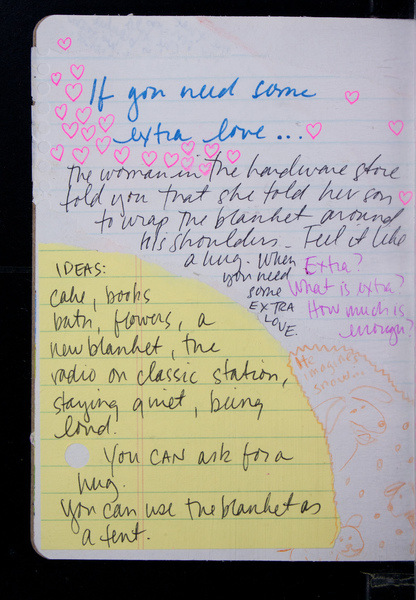 If you need some
extra love...
The woman in the hardware store
told you that she told her son
to wrap the blanket around
his shoulders. Feel it like
a hug. When
you need
some
EXTRA
LOVE.
Extra?
What is extra?
How much is
enough?
IDEAS:
cake, books
bath, flowers, a
new blanket, the
radio on classic station,
staying quiet, being
loud.
You CAN ask for a
hug.
You can use the blanket as
a tent.
He
imagines
snow...